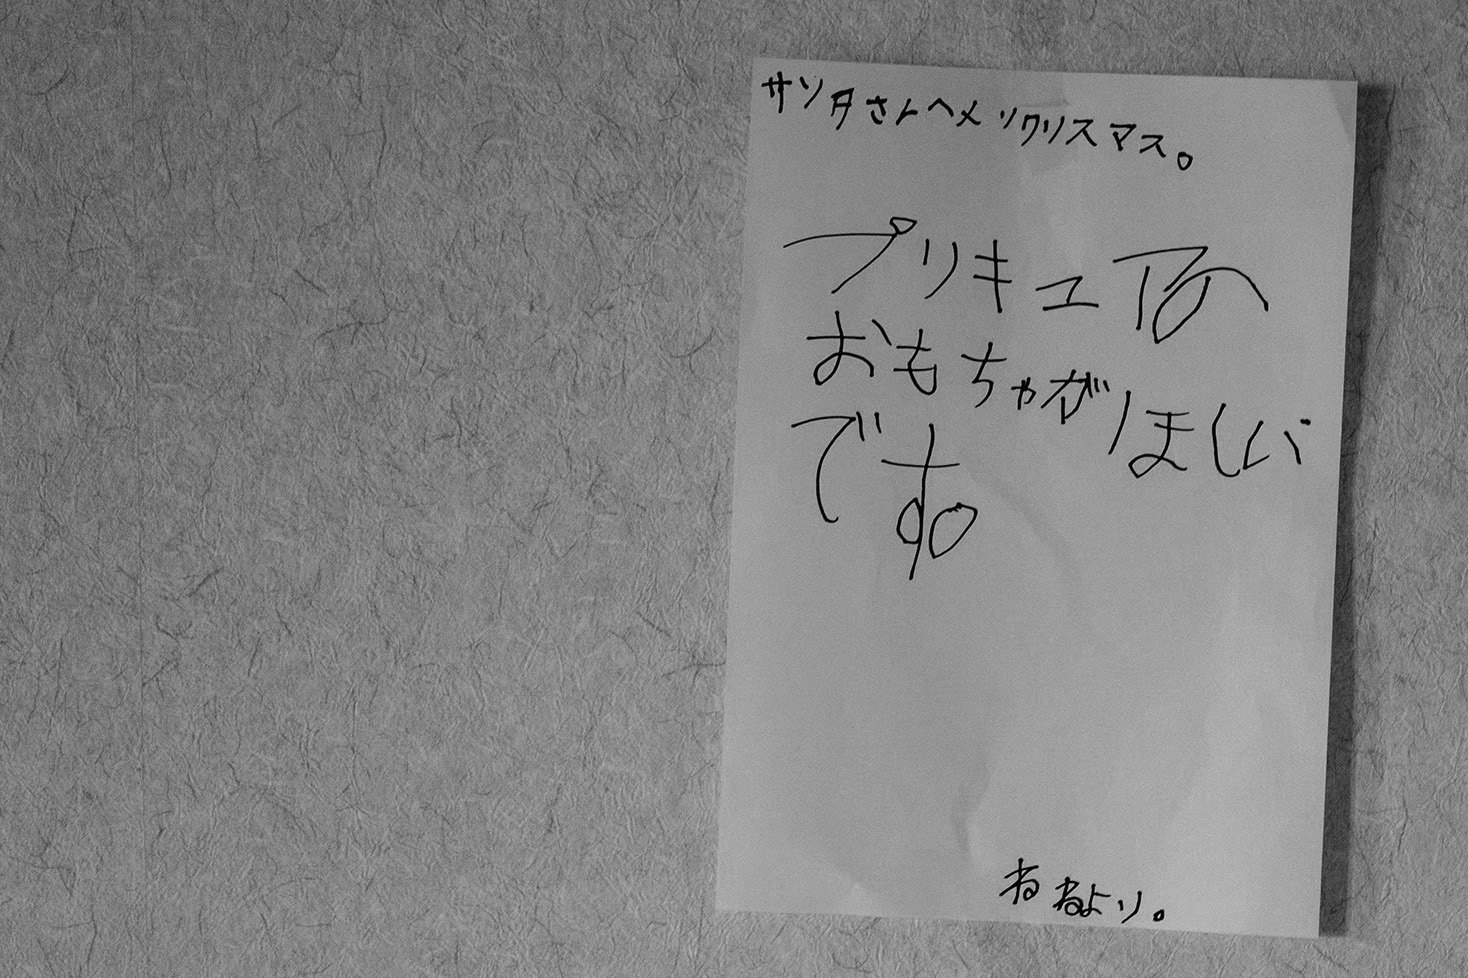 サンタさんへメリクリスマス。
プリキュアの
おもちゃがほしい
です。
ねねより。